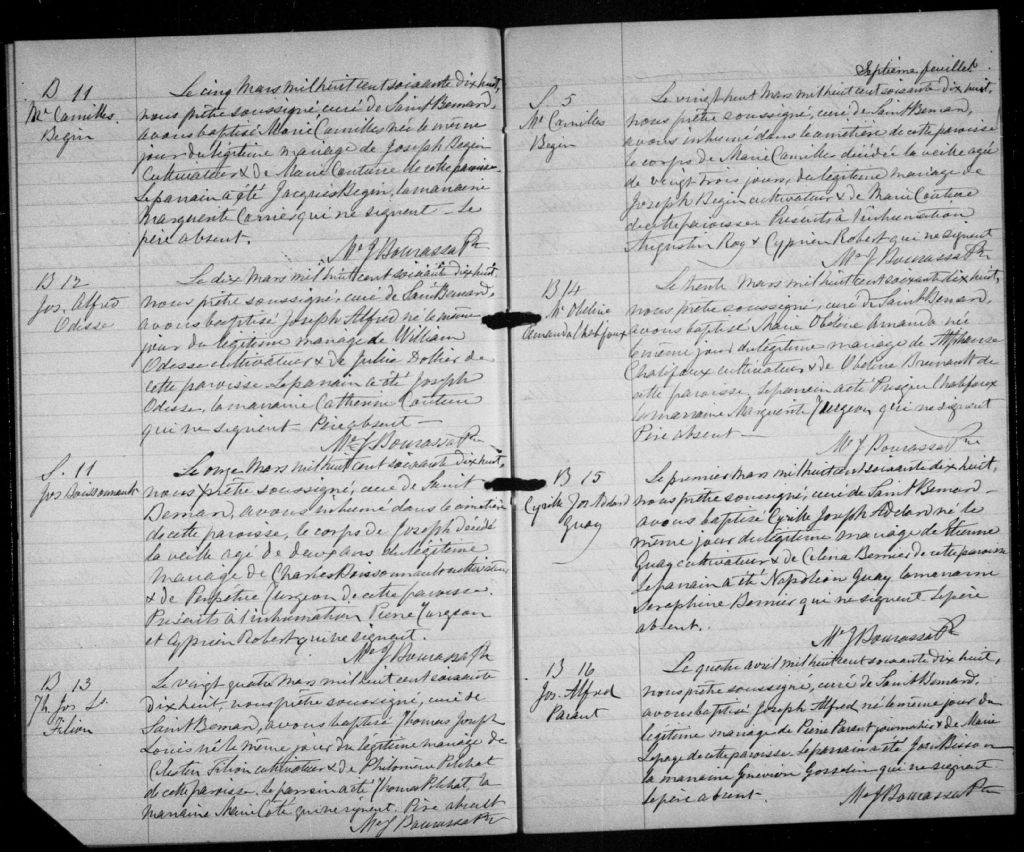 B 11
Mie Camilles
Begin
Le cinq Mars mil huit cent soixante dix huit,
nous prêtre soussigné, curé de Saint Bernard,
avons baptisé Marie Camilles née le même
jour du légitime mariage de Joseph Begin
cultivateur & de Marie Couture de cette paroisse
Le parrain a été Jacques Begin, la marraine
Marguerite Carrier qui ne signent - Le
père absent.
Me J Bourassa Ptre
B 12
Jos. Alfred
Odesse
Le dix Mars mil huit cent soixante dix huit,
nous prêtre soussigné, curé de Saint Bernard,
avons baptisé Joseph Alfred né le même
jour du légitime mariage de William
Odesse cultivateur & de Julie Dolker de
cette paroisse. Le parrain a été Joseph
Odesse, la marraine Catherine Couture
qui ne signent - Père absent -
Me J Bourassa Ptre
S. 11
Jos Boissonnault
Le onze Mars mil huit cent soixante dix huit,
nous prêtre soussigné, curé de Saint
Bernard, avons inhumé dans le cimetière
de cette paroisse, le corps de Joseph décédé
la veille agé de deux ans du légitime
mariage de Charles Boissonnault cultivateur
& de Perpétue Turgeon de cette paroisse.
Présents à l'inhumation Pierre Turgeon
et Cyprien Robert qui ne signent.
Me J Bourassa Ptre
B 13
Th. Jos. Ls.
Filion
Le vingt quatre Mars mil huit cent soixante
dix huit, nous prêtre soussigné, curé de
Saint Bernard, avons baptisé Thomas Joseph
Louis né le même jour du légitime mariage de
Célestin Filion cultivateur & de Philomène
de cette paroisse. Le parrain a été Thomas la
marraine Marie Coté qui ne signent. Père absent
Me J Bourassa Ptre
Septième feuillet.
S. 5
Me Camilles
Begin
Le vingt huit Mars mil huit cent soixante dix huit,
nous prêtre soussigné, curé de Saint Bernard,
avons inhumé dans le cimetière de cette paroisse
le corps de Marie Camilles décédée la veille agée
de vingt trois jours, du légitime mariage de
Joseph Begin cultivateur & de Marie Couture
de cette paroisse. Présents à l'inhumation
Augustin Roy & Cyprien Robert qui ne signent
Me J Bourassa Ptre
B 14
Me Obéline
Amanda Chabifoux
Le trente Mars mil huit cent soixante dix huit,
nous prêtre soussigné, curé de Saint Bernard,
avons baptisé Marie Obéline Amanda née
le même jour du légitime mariage de Alphonse
Chabifoux cultivateur & de Obéline Breinault de
cette paroisse. Le parrain a été Prosper Chabifoux
la marraine Marguerite Turgeon qui ne signent
Père absent -
Me J Bourassa Ptre
B 15
Cyrille Jos Adelard
Guay
Le premier Mars mil huit cent soixante dix huit,
nous prêtre soussigné, curé de Saint Bernard -
avons baptisé Cyrille Joseph Adelard né le
même jour du légitime mariage de Etienne
Guay cultivateur & de Celina Bernier de cette paroisse
Le parrain a été Napoléon Guay la marraine
Seraphine Bernier qui ne signent Le père
absent.
Me J Bourassa Ptre
B 16
Jos. Alfred
Parant
Le quatre avril mil huit cent soixante dix huit,
nous prêtre soussigné, curé de Saint Bernard,
avons baptisé Joseph Alfred né le même jour du
légitime mariage de Pierre Parant journalier & de Marie
Lepage de cette paroisse. Le parrain a été José Bisson
la marraine Genevieve Gosselin qui ne signent
Le père absent.
Me J Bourassa Ptre